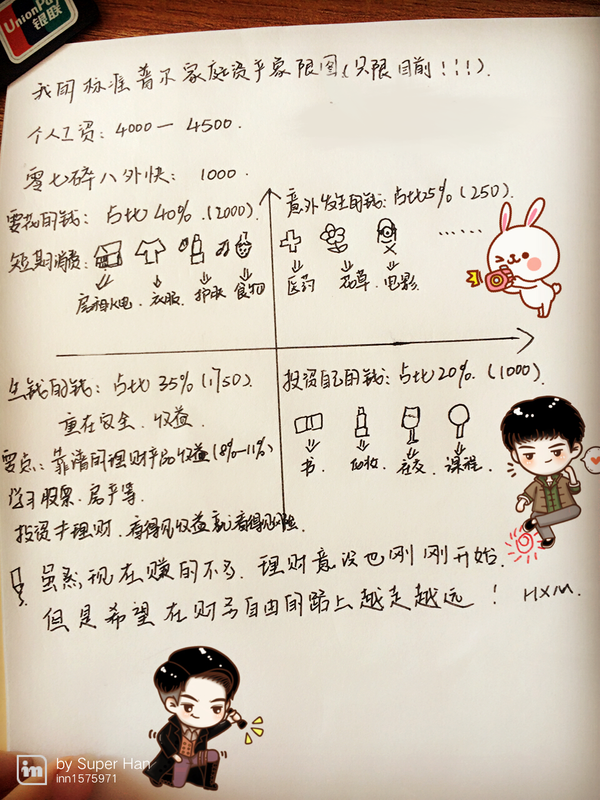 UnionPay
银联
我用标准普尔家庭资产象限图(只限目前!!!).
个人工资: 4000一 4500.
零七碎八外快: 1000.
零花的钱: 占比 40%.(2000).
短期消费:
房租水电. 衣服. 护肤 食物
意外发生的钱: 占比25%(250).
......
医药 花草. 电影.
生钱的钱: 占比 35%(1750).
重在安全. 收益.
要点: 靠谱的理财产品收益(8%-11%)
学习股票. 房产等.
投资才理财. 看得见收益就看得见风险.
投资自己的钱: 占比20%. (1000).
书. 化妆. 社交. 课程.
虽然现在赚的不多. 理财意识也刚刚开始.
但是希望在财务自由的路上越走越远! HXM.
in by Super Han
inn1575971